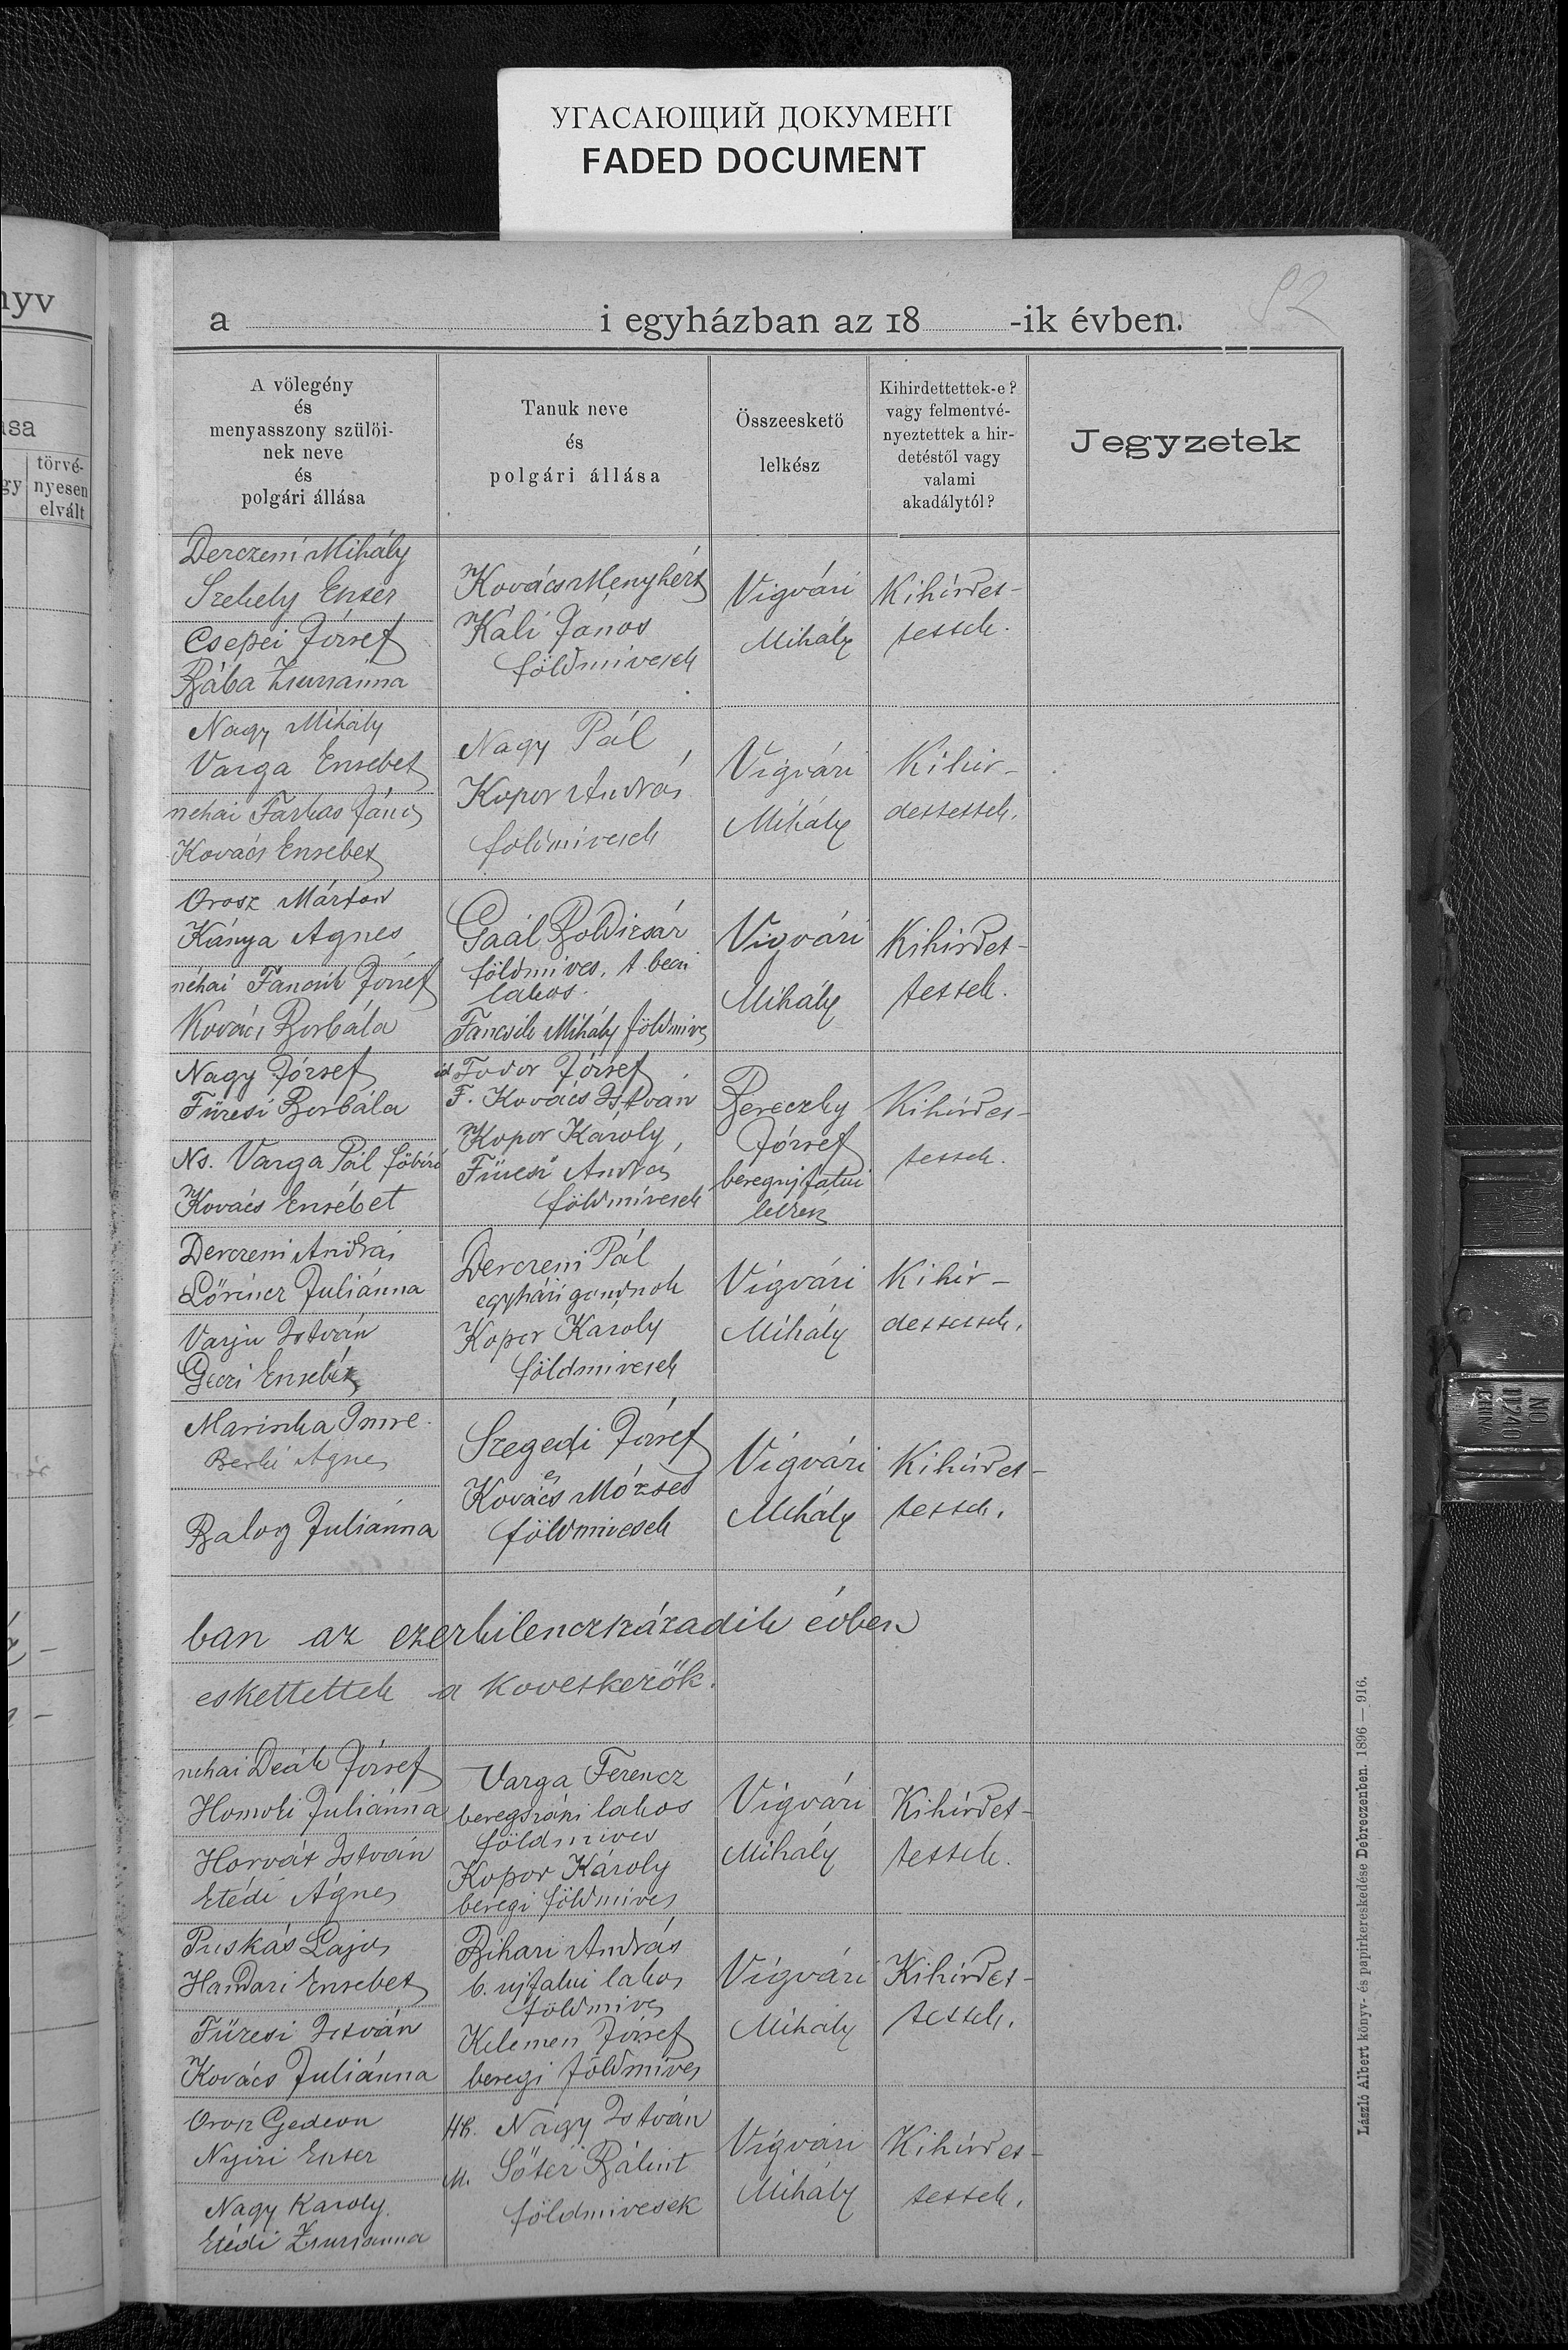 УГАСАЮЩИЙ ДОКУМЕНТ
FADED DOCUMENT
nyv
ása
gy
törvé-
nyesen
elvált
92
a i egyházban az 18 -ik évben.
A völegény
és
menyasszony szülöi-
nek neve
és
polgári állása
Tanuk neve
és
polgári állása
Összeesketö
lelkész
Kihirdettettek-e?
vagy felmentvé-
nyeztettek a hir-
detéstől vagy
valami
akadálytól?
Jegyzetek
Derczeni Mihály
Szekely Eszter
Csepei József
Bába Zsuzsánna
Kovács Menyhért
Káli János
földmivesek
Vígvári
Mihály
Kihírdet-
tettek.
Nagy Mihály
Varga Ersebet
néhai Farkas János
Kovács Ersebet
Nagy Pál
Kopor András
földmivesek
Vígvári
Mihály
Kihir-
dettettek.
Orosz Márton
Kánya Ágnes
néhai Fancsik József
Kovács Borbála
Gaál Boldizsár
földmives, t. becsi
lakos.
Fancsik Mihály földmives
Vígvári
Mihály
Kihírdet-
tettek.
Nagy József
Füzesi Borbála
Ns. Varga Pál föbiró
Kovács Ersébet
id Fodor József
F. Kovács István
Kopor Karoly,
Füzesi András
földmívesek
Bereczky
József
beregujfalui
lelkész
Kihírdet-
tettek.
Derczeni András
Lőrincz Juliánna
Varju István
Geczi Ersebet
Derczeni Pál
egyházi gondnok
Kopor Karoly
földmivesek
Vígvári
Mihály
Kihír-
dettettek.
Marinka Imre
Berki Ágnes
Balog Juliánna
Szegedi József
és
Kovács Mózses
földmivesek
Vígvári
Mihály
Kihírdet-
tettek.
ban az ezerkilenczszázadik évben
eskettettek a kovetkezők.
néhai Deák József
Homoki Juliánna
Horvát István
Etédi Ágnes
Varga Ferencz
beregszászi lakos
földmives
Kopor Károly
beregi földmives
Vígvári
Mihály
Kihírdet-
tettek.
Puskás Lajos
Handari Ersebet
Füzesi István
Kovács Juliánna
Bihari András
b. ujfalui lakos
földmives
Kelemen József
beregi földmíves
Vígvári
Mihály
Kihírdet-
tettek.
Orosz Gedeon
Nyiri Eszter
Nagy Karoly
Etédi Zsuzsanna
Nagy István
M. Sőtér Bálint
földmivesek
Vígvári
Mihály
Kihírdet-
tettek.
László Albert könyv- és papirkereskedése Debreczenben. 1896 — 916.